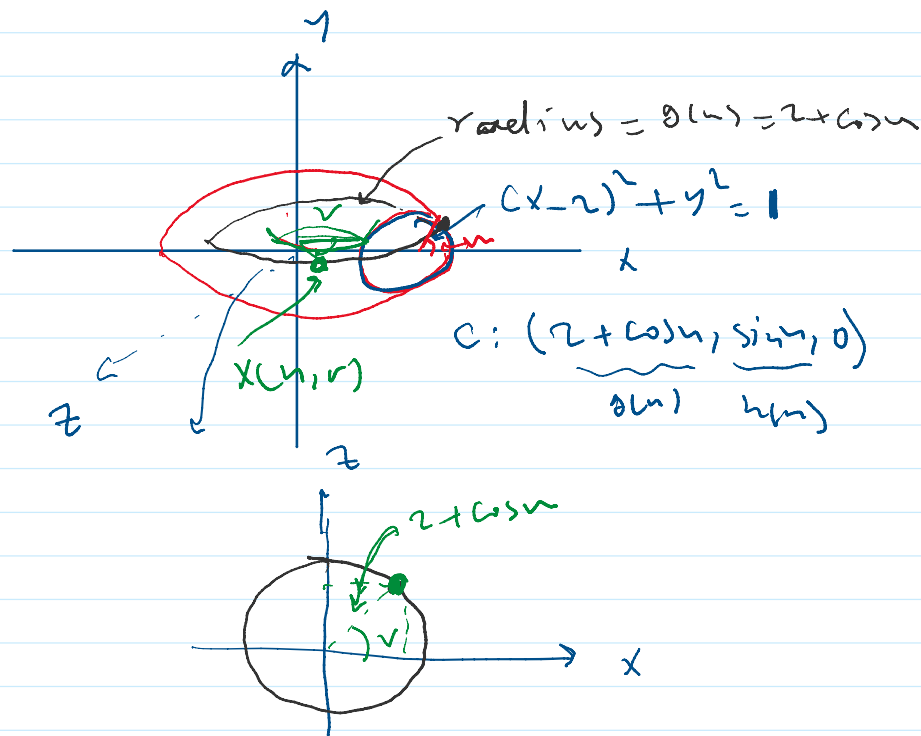 y
radius = g(u) = 2+cosu
v
(x-2)² + y² = 1
u
x
C: (2+cosu, sinu, 0)
x(u,v)
g(u) h(u)
z
z
2+cosu
v
x